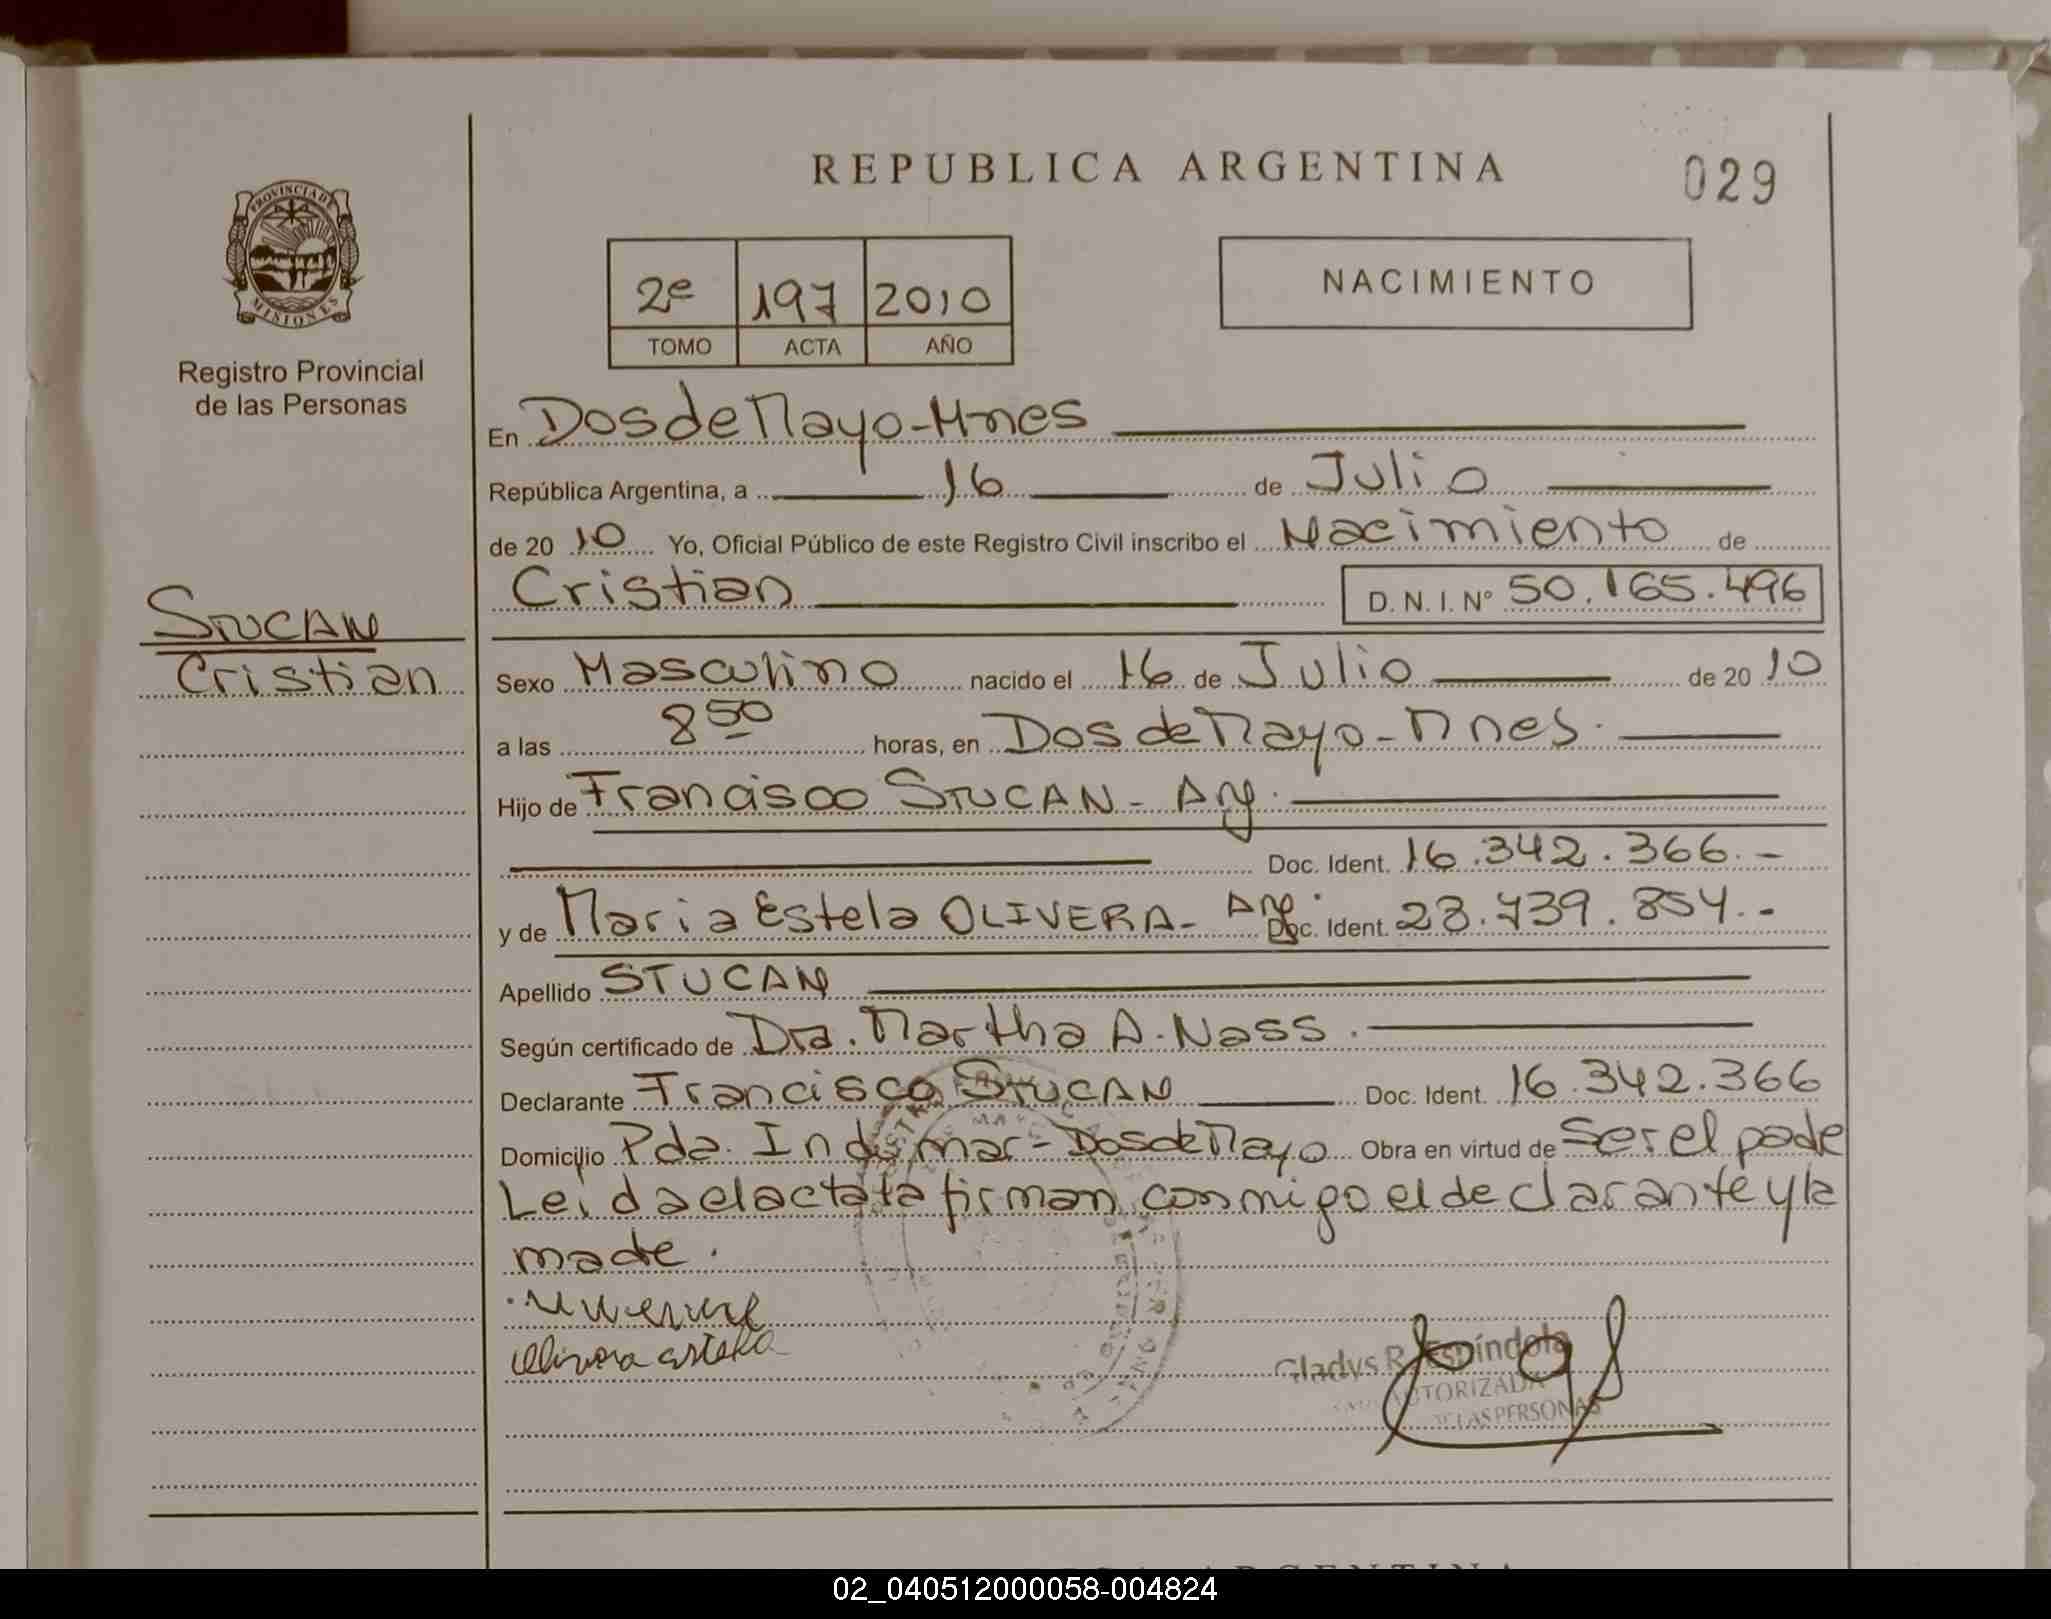 REPUBLICA ARGENTINA
029
PROVINCIA DE
MISIONES
Registro Provincial
de las Personas
2º 197 2010
TOMO ACTA AÑO
NACIMIENTO
En Dos de Mayo-Mnes
República Argentina, a 16 de Julio
de 2010 Yo, Oficial Público de este Registro Civil inscribo el Nacimiento de
Cristian D. N. I. Nº 50.165.496
STUCAN
Cristian
Sexo Masculino nacido el 16 de Julio de 2010
a las 8 50 horas, en Dos de Mayo - Mnes.
Hijo de Francisco STUCAN - Arg.
Doc. Ident. 16.342.366.-
y de Maria Estela OLIVERA - Arg. Doc. Ident. 23.739.854.-
Apellido STUCAN
Según certificado de Dra. Martha A. Nass.
Declarante Francisco STUCAN Doc. Ident. 16.342.366
Domicilio Pda. Indumar - Dos de Mayo Obra en virtud de Ser el pade
Leida el acta ta firman conmigo el declarante y la
made.
Olivera estela
Gladys R. Espíndola
AUTORIZADA
DE LAS PERSONAS
ARGENTINA
02_040512000058-004824